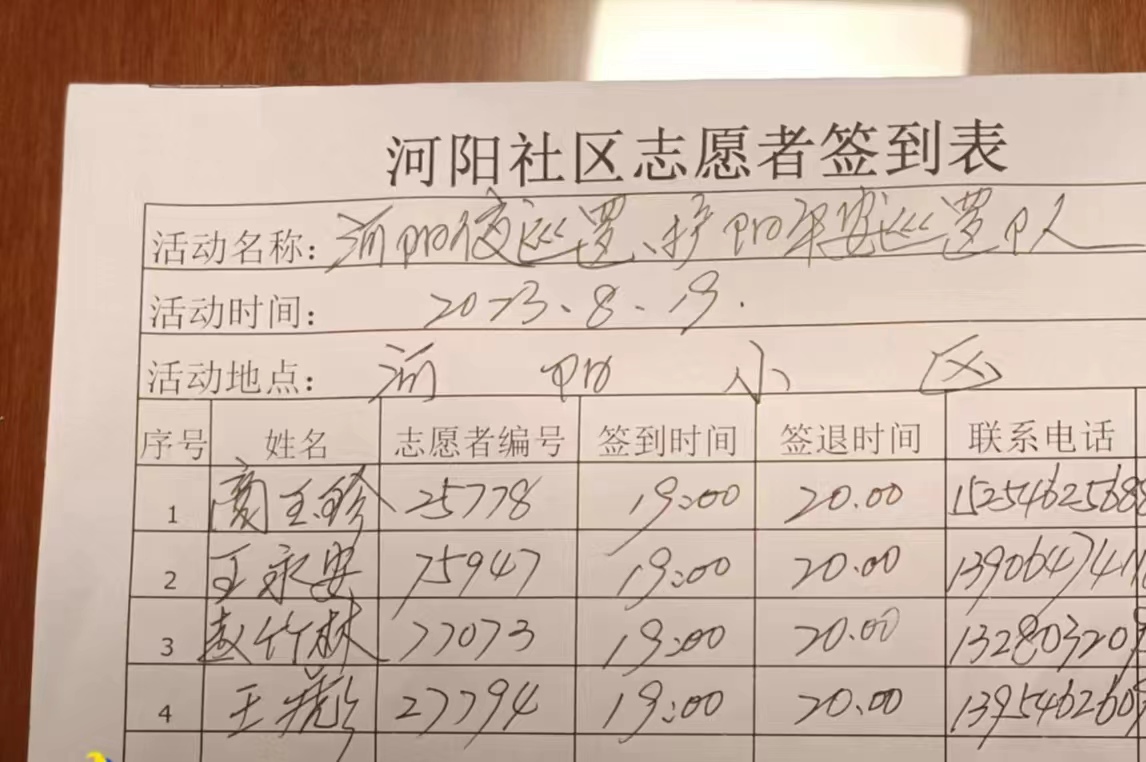 河阳社区志愿者签到表
活动名称：河阳夜巡逻、护阳平安巡逻
活动时间： 2023.8.19.
活动地点： 河 阳 小 区
序号 姓名 志愿者编号 签到时间 签退时间 联系电话
1 25778 19:00 20.00 1525462568
2 王永安 75947 19:00 20.00 1390647411
3 赵竹林 77073 19:00 20.00 132803209
4 27794 19:00 20.00 139546260